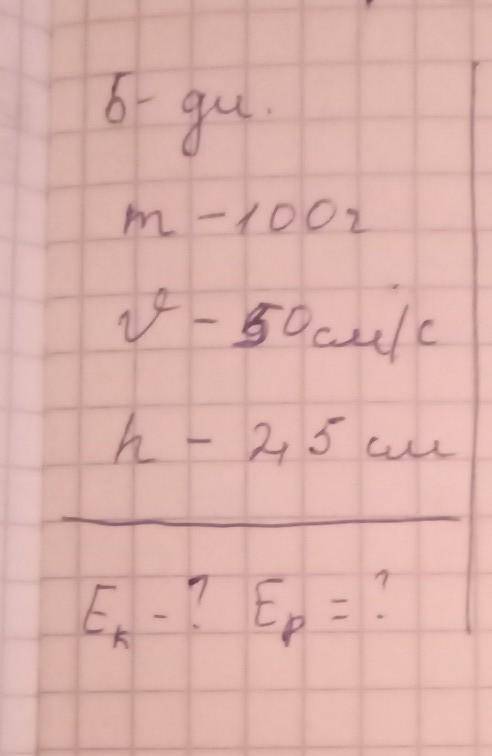 5- ди.
m - 100г
v - 50см/с
h - 2,5 см
Eк - ? Ep = ?